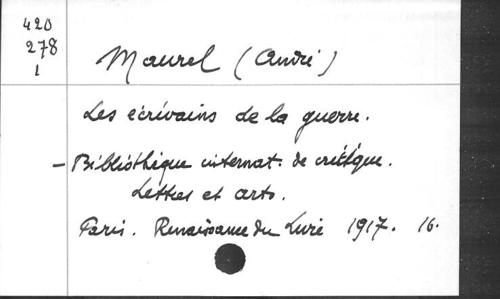 420
278
1
Maurel (André)
Les écrivains de la guerre.
- Bibliothèque internat. de critique.
Lettres et arts.
Paris. Renaissance du Livre 1917. 16.